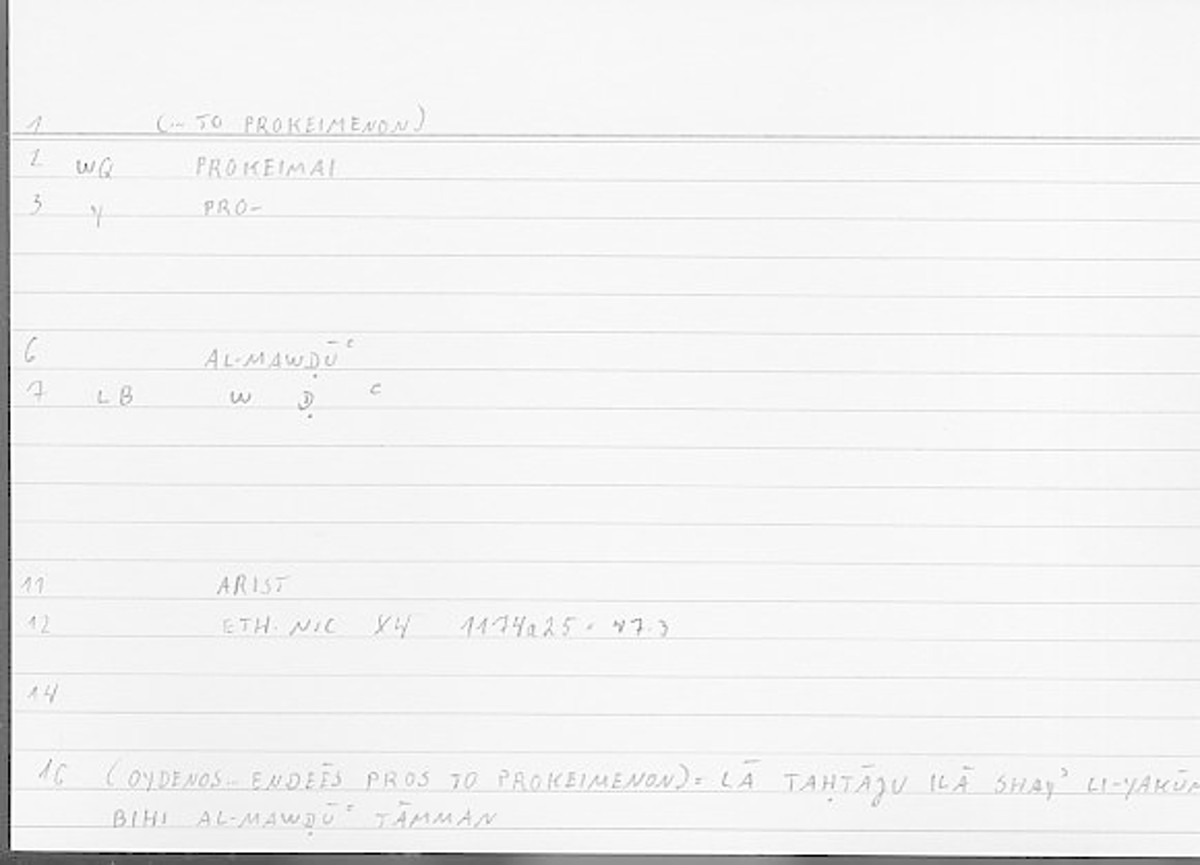 1 (... TO PROKEIMENON)
2 WQ PROKEIMAI
3 y PRO-
6 AL-MAWḌŪʿ
7 LB W Ḍ ʿ
11 ARIST
12 ETH. NIC X4 1174a25
14
16 (OYDENOS... ENDEĒS PROS TO PROKEIMENON) = LĀ TAḤTĀJU ILĀ SHAYʾ LI-YAKŪN
BIHI AL-MAWḌŪʿ TĀMMAN